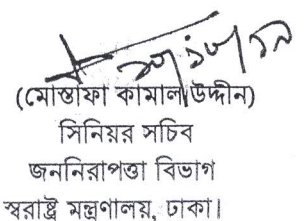 (মোস্তাফা কামাল উদ্দীন)
সিনিয়র সচিব
জননিরাপত্তা বিভাগ
স্বরাষ্ট্র মন্ত্রণালয়, ঢাকা।